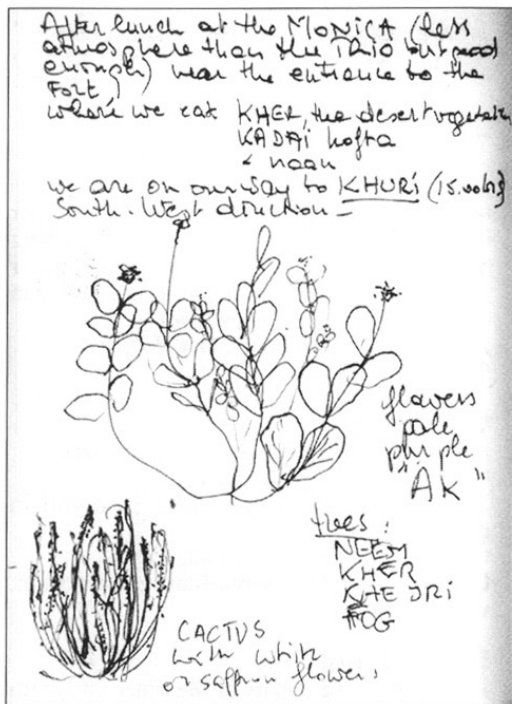 After lunch at the MONICA (less
atmosphere than the TRIO but good
enough) near the entrance to the
Fort)
where we eat KHER, the desert vegetable
KADAI kofta
& naan
we are on our way to KHURI (15.00hrs)
South-West direction -
flowers
pale
purple
"AK"
trees:
NEEM
KHER
KHEJRI
FOG
CACTUS
with white
or saffron flowers